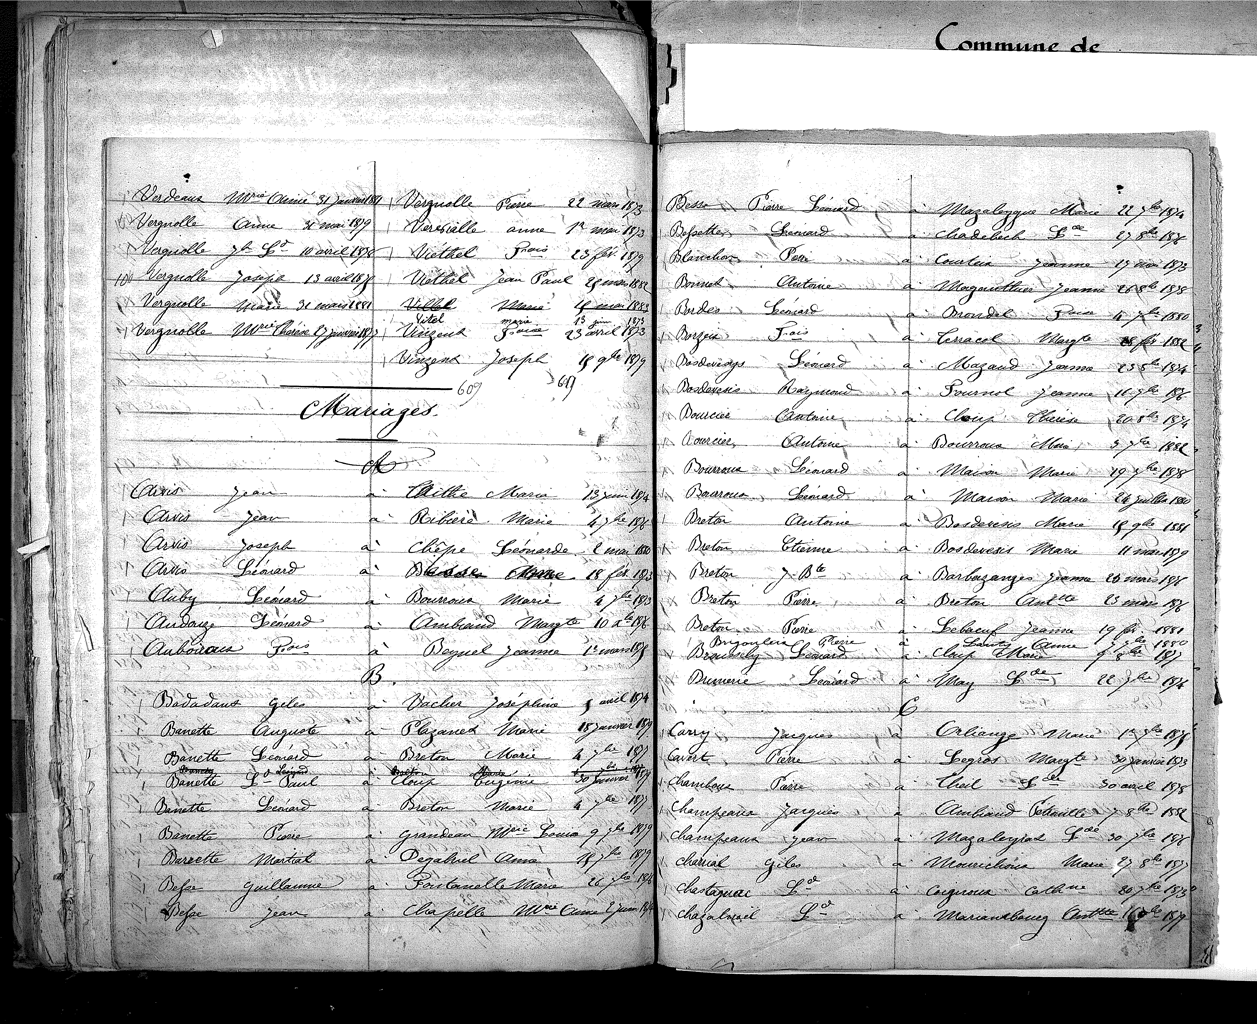 Commune de
Verdeaux Mrie Aimé 31 janvier 1881
Vergnolle Anne 31 mai 1879
Vergnolle Jn Ld 10 avril 1876
Vergnolle Joseph 13 avril 1878
Vergnolle Marie 31 mars 1881
Vergnolle Mrie Thérèse 27 janvier 1877
Vergnolle Pierre 22 mars 1873
anne 1er mai 1873
Viethel Fcois 23 fév 1879
Viethel Jean Paul
Villel Marie 1883
Vitel marie 13 juin 1873
Vinzent 23 avril 1873
Vinzent Joseph 18 9bre 1879
609 609
Mariages.
A
Arvis Jean à Marie 13 juin 1874
Arvis Jean à Ribiere Marie 4 7bre
Arvis Joseph à Chèpe Léonarde 2 mai 1880
Arvis Léonard à 18 fév. 1873
Auby Léonard à Bourroux Marie 4 7bre 1873
Audouze Léonard à Ambiaud Margte 10 1876
Fcois à Beynel Jeanne 1er mars 1878
B.
Badadaux Giles à Vacher Joséphine avril 1874
Banette Auguste à Plazanet Marie 18 janvier 1879
Banette Léonard à Breton Marie 4 7bre 1877
Banette Ld Paul à Cloup Eugénie 30 janvier 1879
Banette Léonard à Breton Marie 4 7bre 1877
Banette Pierre à Grandeau Mrie Louise 9 7bre 1879
Barette Martial à Degabriel Anna 18 7bre 1879
Besse Guillaume à Fontanelle Marie 26 7bre 1876
Besse Jean à Chapelle Mrie Anne 2 juin
Besse Pierre Léonard à Mazaleygue Marie 22 7bre 1874
Bessette Léonard à Chadebech Lde 27 8bre 1876
Blanchon Pierre à Courteix Jeanne 17 mai 1873
Bonnet Antoine à Magnouttier Jeanne 26 8bre 1878
Bordes Léonard à Brondel 4 7bre 1880
Borzeix Fcois à Terracol Margte 1882
Bosdeveixs Léonard à Mazaud Jeanne 25 8bre 1874
Bosdeveixs Raymond à Fournol Jeanne 16 7bre 1876
Bourcier Antoine à Cloup Thérèse 20 8bre 1874
Bourcier Antoine à Bourroux Marie 5 7bre 1882
Bourroux Léonard à Maison Marie 19 7bre 1878
Bourroux Léonard à Maison Marie 24 juillet 1880
Breton Antoine à Bosdeveixs Marie 18 9bre 1881
Breton Etienne à Bosdeveixs Marie 11 mars 1879
Breton J Bte à Barbazanges Jeanne 26 mars 1876
Breton Pierre à Breton Antte 23 mars 1876
Breton Pierre à Leboeuf Jeanne 19 fév 1881
Pierre à Anne 7bre 1880
Léonard à Cloup Marie 9 8bre 1877
Brunerie Léonard à May Lde 22 7bre 1874
C
Carry Jacques à Orliange Marie 1er 7bre 1876
Cavort Pierre à Legros Margte 30 janvier 1873
Chamboux Pierre à Theil Lde 30 avril 1878
Champeaux Jacques à Ambiaud 7 8bre 1882
Champeaux Jean à Mazaleyrat Lde 30 7bre 1876
Charrial Giles à Mourichoux Marie 27 8bre 1877
Chastagnac Ld à Coignoux Cathne 20 7bre 1873
Chazalnoël Ld à Marianbourg Antte 16 7bre 1877